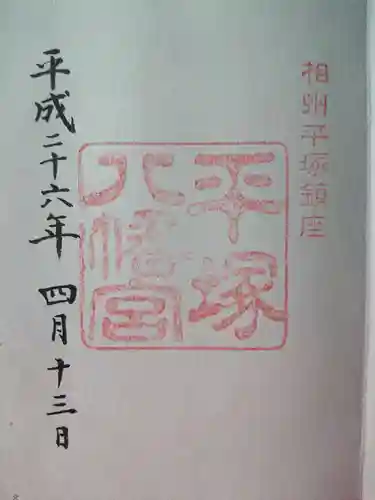 相州平塚鎮座
平塚
八幡宮
平成二十六年 四月十三日